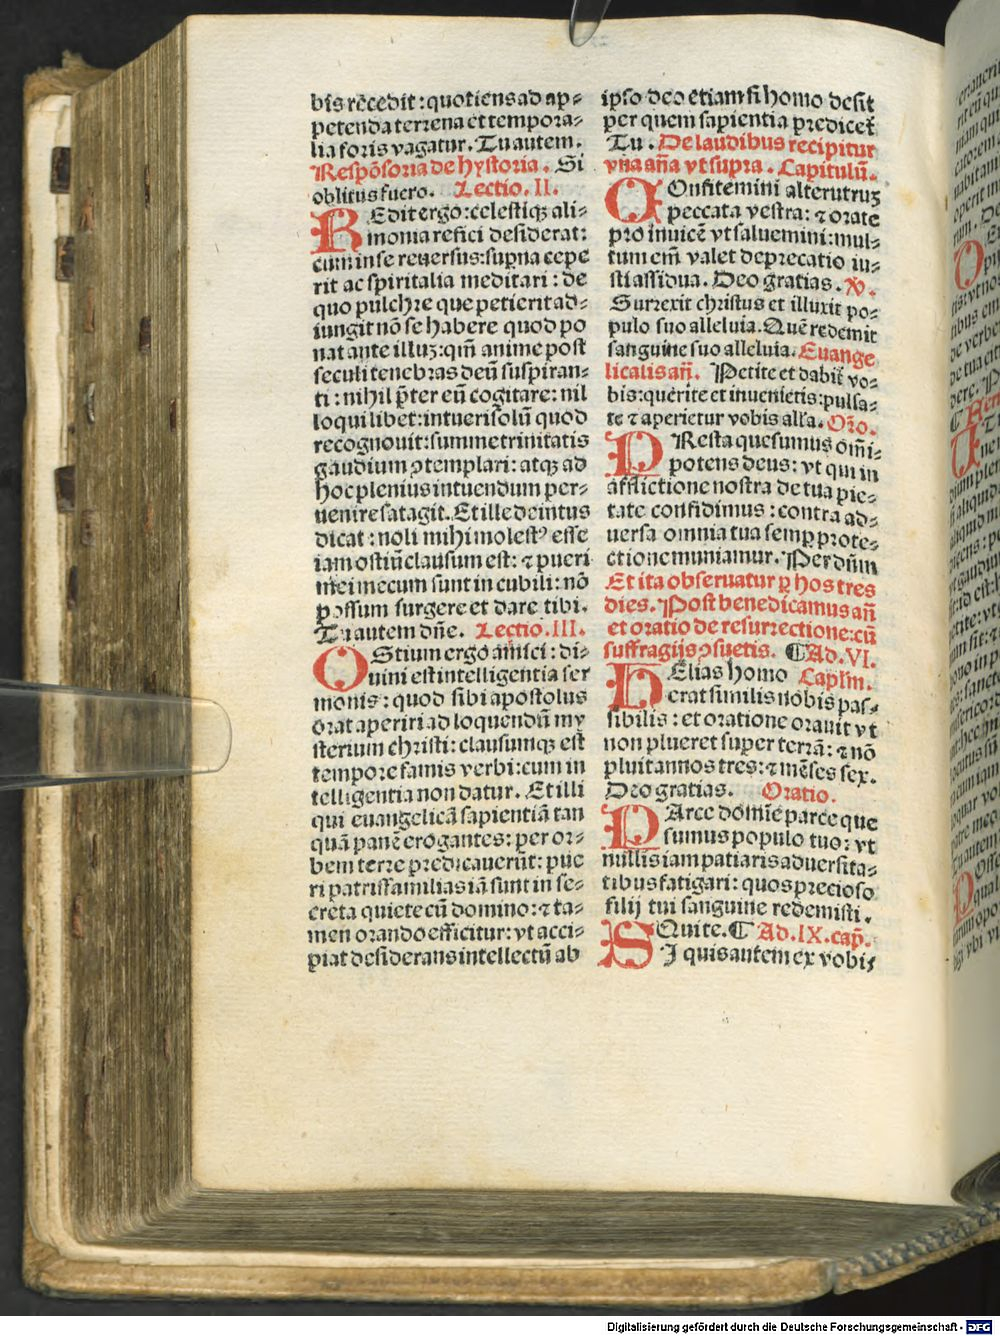 bis rēcedit : quotiens ad ap⸗
petenda terrena et tempora⸗
lia foris vagatur. Tu autem.
Respōsoria de hystoria. Si
oblitus fuero. Lectio. II.
REdit ergo: celestiqꝫ ali⸗
monia refici desiderat:
cum in se reuersus: supna cepe
rit ac spiritalia meditari : de
quo pulchre que petierit ad⸗
iungit nō se habere quod po
nat ante illuꝫ: qm̄ anime post
seculi tenebras deū suspiran⸗
ti : nihil p̄ter eū cogitare: nil
loqui libet: intueri solū quod
recognouit: summe trinitatis
gaudium ꝯtemplari: atqꝫ ad
hoc plenius intuendum per⸗
uenire satagit. Et ille deintus
dicat: noli mihi molestꝰ esse
iam ostiū clausum est: ⁊ pueri
mei mecum sunt in cubili: nō
possum surgere et dare tibi.
Tu autem dn̄e. Lectio. III.
OStium ergo amici: di⸗
uini est intelligentia ser
monis: quod sibi apostolus
orat aperiri ad loquendū my
sterium christi: clausumqꝫ est
tempore famis verbi: cum in
telligentia non datur. Et illi
qui euangelicā sapientiā tan
quā panē erogantes: per or⸗
bem terre predicauerūt: pue
ri patrisfamilias iā sunt in se⸗
creta quiete cū domino: ⁊ ta⸗
men orando efficitur: vt acci⸗
piat desiderans intellectū ab
ipso deo etiam si homo desit
per quem sapientia predicet̄
Tu. De laudibus recipitur
vna an̄a vt supra. Capitulū.
COnfitemini alterutruꝫ
peccata vestra: ⁊ orate
pro inuicē vt saluemini: mul⸗
tum em̄ valet deprecatio iu⸗
sti assidua. Deo gratias. ℣.
Surrexit christus et illuxit po⸗
pulo suo alleluia. Quē redemit
sanguine suo alleluia. Euange
licalis an̄. Petite et dabit̄ vo⸗
bis: querite et inuenietis: pulsa⸗
te ⁊ aperietur vobis alla. Oro.
PResta quesumus om̄i⸗
potens deus: vt qui in
afflictione nostra de tua pie⸗
tate confidimus : contra ad⸗
uersa omnia tua semp prote⸗
ctione muniamur. Per dn̄m
Et ita obseruatur ꝑ hos tres
dies. Post benedicamus an̄
et oratio de resurrectione: cū
suffragijs ꝯsuetis. ¶Ad. VI.
HElias homo Caplm.
erat similis nobis pas⸗
sibilis : et oratione orauit vt
non plueret super terrā: ⁊ nō
pluit annos tres: ⁊ mēses sex.
Deo gratias. Oratio.
PArce domīe parce que
sumus populo tuo: vt
nullis iam patiaris aduersita⸗
tibus fatigari: quos precioso
filij tui sanguine redemisti.
SQuite. ¶ Ad. IX. cap.
Si quis autem ex vobis
Digitalisierung gefördert durch die Deutsche Forschungsgemeinschaft - DFG